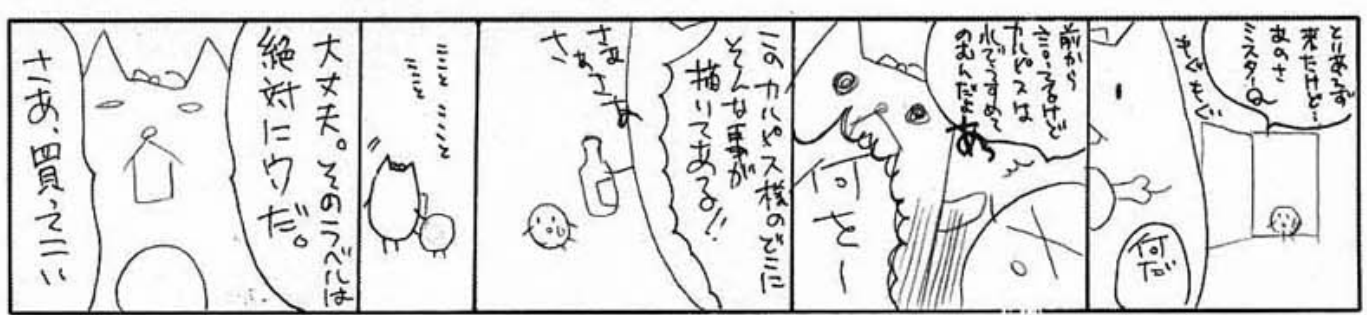 とりあえず
来たけど…
あのさ
ミスターQ
もぐもぐ
何だ
前から
言ってるけど
カルピスは
水でうすめて
のむんだよ
あ〜
何を〜
このカルピス様のどこに
そんな事が
描いてある!!
さあ
さぁ
さぁ
大丈夫。そのラベルは
絶対にウソだ。
さあ、買ってこい